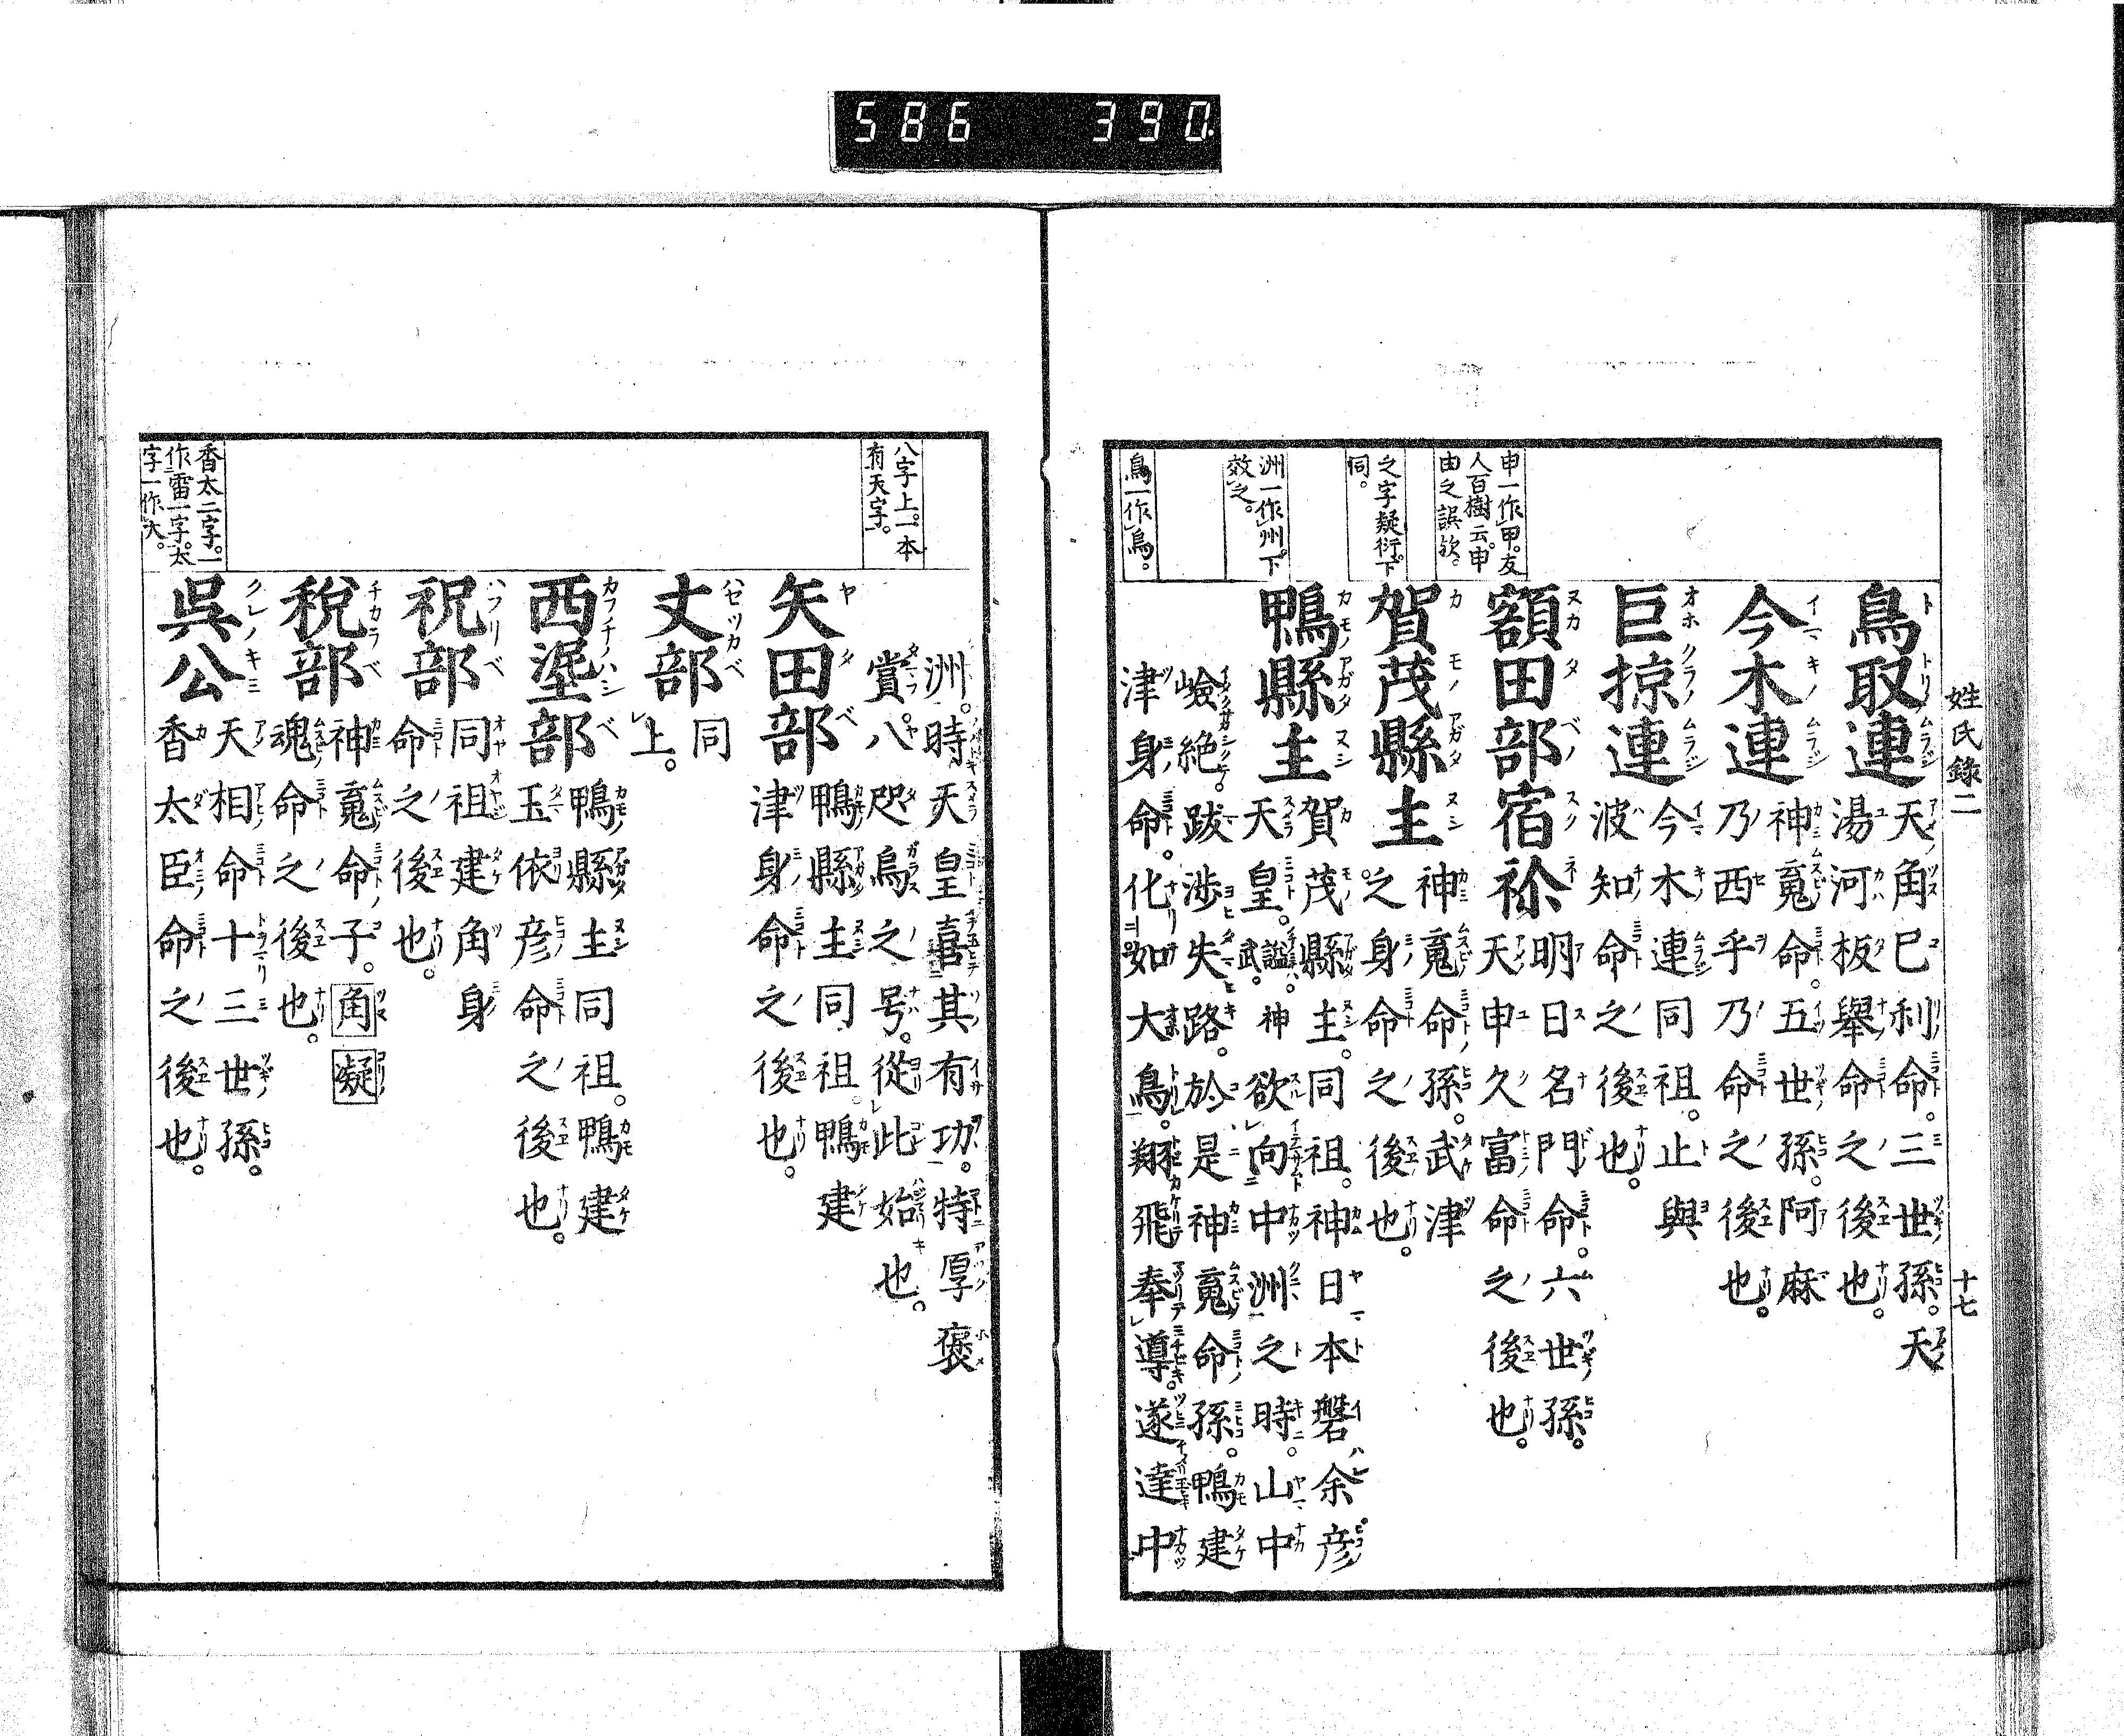 586 390
姓氏錄二 十七
申一作甲。友
人百樹云。申
由之誤欤。
之字疑衍。下
同。
洲一作州。下
效之。
鳥一作烏。
鳥取連
天角巳利命。三世孫。天
湯河板擧命之後也。
今木連
神䰟命。五世孫。阿麻
乃西乎乃命之後也。
巨掠連
今木連同祖。止與
波知命之後也。
額田部宿祢
明日名門命。六世孫。
天申久富命之後也。
賀茂縣主
神䰟命孫。武津
之身命之後也。
鴨縣主
賀茂縣主。同祖。神日本磐余彦
天皇。謚神武。欲向中洲之時。山中
嶮絶。跋渉失路。於是神䰟命孫。鴨建
津身命。化如大鳥。翔飛奉導。遂達中
八字上。一本
有天字。
香太二字。一
作雷一字。太
字一作大。
洲。時天皇喜其有功。特厚褒
賞。八咫烏之号。從此始也。
矢田部
鴨縣主同祖。鴨建
津身命之後也。
丈部
同
上。
西埿部
鴨縣主同祖。鴨建
玉依彦命之後也。
祝部
同祖建角身
命之後也。
税部
神䰟命子。角凝
魂命之後也。
呉公
天相命十三世孫。
香太臣命之後也。